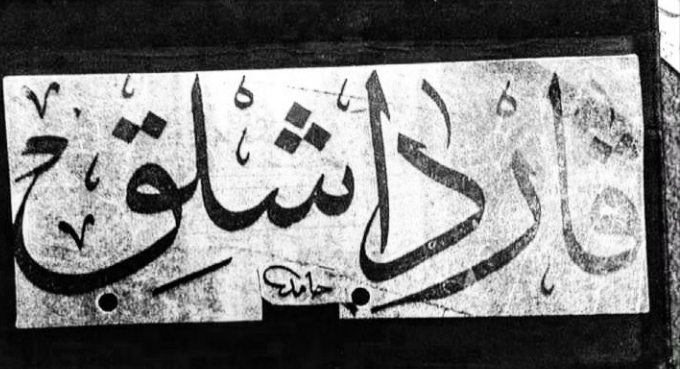 قارداشلق
حامد